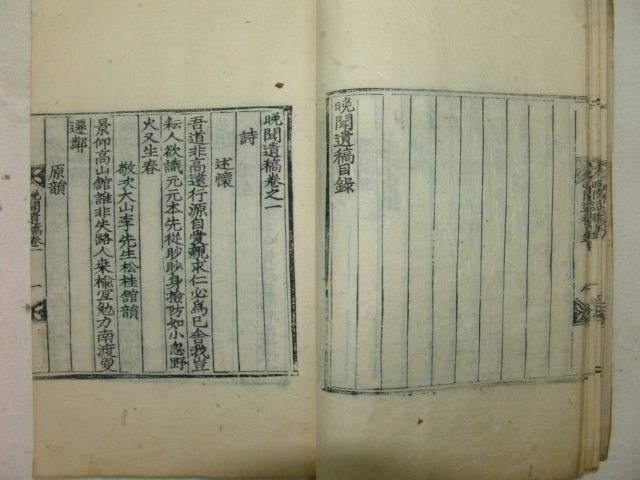 晩聞遺稿目錄
晩聞遺稿卷之一
詩
述懷
吾道非高遠行源自愛親求仁必爲已舍我豈
耘人欲識元元本先從眇眇身撿防如小忽野
火又生春
敬次大山李先生松桂館韻
景仰高山館誰非失路人桒楡宜勉力南渡更
遷鄰
原韻
晩聞遺稿卷一
一